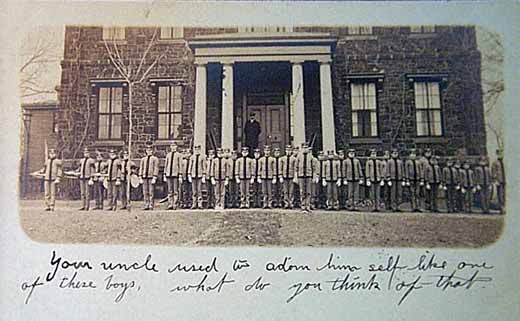 Your uncle used to adorn him self like one
of these boys, what do you think of that.